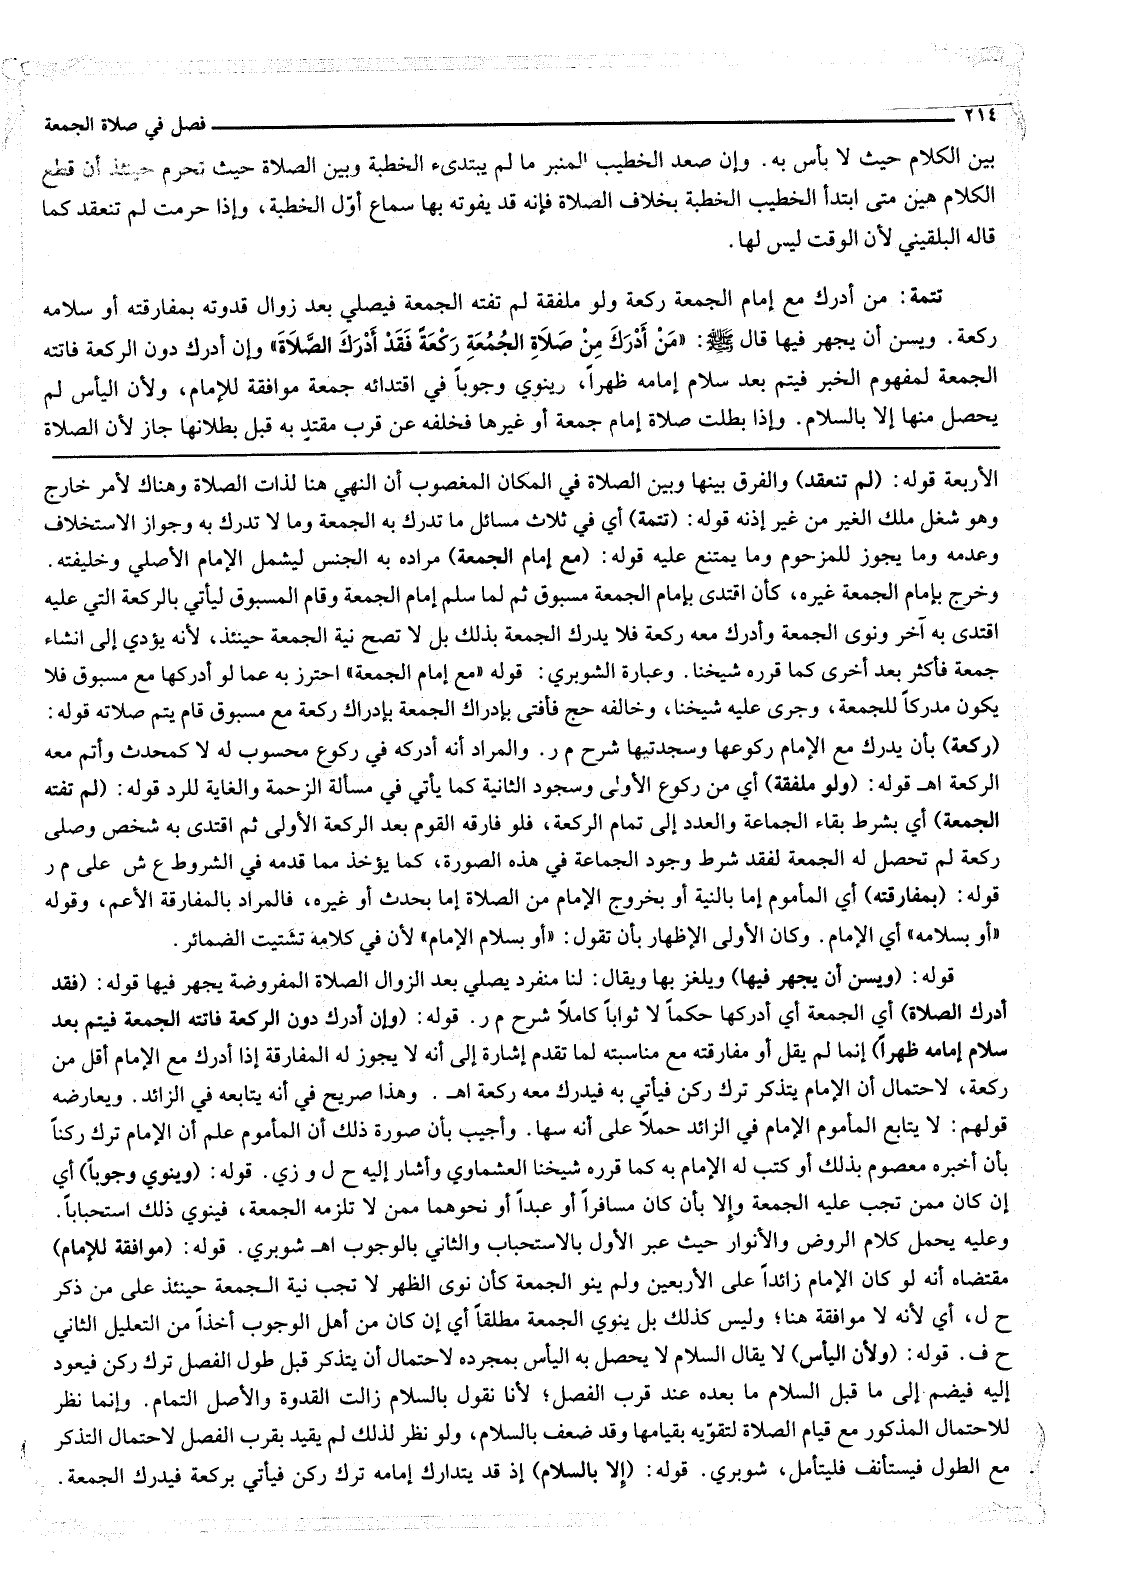 ٢١٤ فصل في صلاة الجمعة
بين الكلام حيث لا بأس به. وإن صعد الخطيب المنبر ما لم يبتدىء الخطبة وبين الصلاة حيث تحرم حينئذ أن قطع
الكلام هين متى ابتدأ الخطيب الخطبة بخلاف الصلاة فإنه قد يفوته بها سماع أوّل الخطبة، وإذا حرمت لم تنعقد كما
قاله البلقيني لأن الوقت ليس لها.
تتمة: من أدرك مع إمام الجمعة ركعة ولو ملفقة لم تفته الجمعة فيصلي بعد زوال قدوته بمفارقته أو سلامه
ركعة. ويسن أن يجهر فيها قال ﷺ: «مَنْ أَدْرَكَ مِنْ صَلَاةِ الجُمُعَةِ رَكْعَةً فَقَدْ أَدْرَكَ الصَّلَاةَ» وإن أدرك دون الركعة فاتته
الجمعة لمفهوم الخبر فيتم بعد سلام إمامه ظهراً، رينوي وجوباً في اقتدائه جمعة موافقة للإمام، ولأن اليأس لم
يحصل منها إلا بالسلام. وإذا بطلت صلاة إمام جمعة أو غيرها فخلفه عن قرب مقتدٍ به قبل بطلانها جاز لأن الصلاة
الأربعة قوله: (لم تنعقد) والفرق بينها وبين الصلاة في المكان المغصوب أن النهي هنا لذات الصلاة وهناك لأمر خارج
وهو شغل ملك الغير من غير إذنه قوله: (تتمة) أي في ثلاث مسائل ما تدرك به الجمعة وما لا تدرك به وجواز الاستخلاف
وعدمه وما يجوز للمزحوم وما يمتنع عليه قوله: (مع إمام الجمعة) مراده به الجنس ليشمل الإمام الأصلي وخليفته.
وخرج بإمام الجمعة غيره، كأن اقتدى بإمام الجمعة مسبوق ثم لما سلم إمام الجمعة وقام المسبوق ليأتي بالركعة التي عليه
اقتدى به آخر ونوى الجمعة وأدرك معه ركعة فلا يدرك الجمعة بذلك بل لا تصح نية الجمعة حينئذ، لأنه يؤدي إلى انشاء
جمعة فأكثر بعد أخرى كما قرره شيخنا. وعبارة الشوبري: قوله «مع إمام الجمعة» احترز به عما لو أدركها مع مسبوق فلا
يكون مدركاً للجمعة، وجرى عليه شيخنا، وخالفه حج فأفتى بإدراك الجمعة بإدراك ركعة مع مسبوق قام يتم صلاته قوله:
(ركعة) بأن يدرك مع الإمام ركوعها وسجدتيها شرح م ر. والمراد أنه أدركه في ركوع محسوب له لا كمحدث وأتم معه
الركعة اهـ قوله: (ولو ملفقة) أي من ركوع الأولى وسجود الثانية كما يأتي في مسألة الزحمة والغاية للرد قوله: (لم تفته
الجمعة) أي بشرط بقاء الجماعة والعدد إلى تمام الركعة، فلو فارقه القوم بعد الركعة الأولى ثم اقتدى به شخص وصلى
ركعة لم تحصل له الجمعة لفقد شرط وجود الجماعة في هذه الصورة، كما يؤخذ مما قدمه في الشروط ع ش على م ر
قوله: (بمفارقته) أي المأموم إما بالنية أو بخروج الإمام من الصلاة إما بحدث أو غيره، فالمراد بالمفارقة الأعم، وقوله
«أو بسلامه» أي الإمام. وكان الأولى الإظهار بأن تقول: «أو بسلام الإمام» لأن في كلامه تشتيت الضمائر.
قوله: (ويسن أن يجهر فيها) ويلغز بها ويقال: لنا منفرد يصلي بعد الزوال الصلاة المفروضة يجهر فيها قوله: (فقد
أدرك الصلاة) أي الجمعة أي أدركها حكماً لا ثواباً كاملاً شرح م ر. قوله: (وإن أدرك دون الركعة فاتته الجمعة فيتم بعد
سلام إمامه ظهراً) إنما لم يقل أو مفارقته مع مناسبته لما تقدم إشارة إلى أنه لا يجوز له المفارقة إذا أدرك مع الإمام أقل من
ركعة، لاحتمال أن الإمام يتذكر ترك ركن فيأتي به فيدرك معه ركعة اهـ. وهذا صريح في أنه يتابعه في الزائد. ويعارضه
قولهم: لا يتابع المأموم الإمام في الزائد حملاً على أنه سها. وأجيب بأن صورة ذلك أن المأموم علم أن الإمام ترك ركناً
بأن أخبره معصوم بذلك أو كتب له الإمام به كما قرره شيخنا العشماوي وأشار إليه ح ل و زي. قوله: (وينوي وجوباً) أي
إن كان ممن تجب عليه الجمعة وإلا بأن كان مسافراً أو عبداً أو نحوهما ممن لا تلزمه الجمعة، فينوي ذلك استحباباً.
وعليه يحمل كلام الروض والأنوار حيث عبر الأول بالاستحباب والثاني بالوجوب اهـ شوبري. قوله: (موافقة للإمام)
مقتضاه أنه لو كان الإمام زائداً على الأربعين ولم ينو الجمعة كأن نوى الظهر لا تجب نية الجمعة حينئذ على من ذكر
ح ل، أي لأنه لا موافقة هنا؛ وليس كذلك بل ينوي الجمعة مطلقاً أي إن كان من أهل الوجوب أخذاً من التعليل الثاني
ح ف. قوله: (ولأن اليأس) لا يقال السلام لا يحصل به اليأس بمجرده لاحتمال أن يتذكر قبل طول الفصل ترك ركن فيعود
إليه فيضم إلى ما قبل السلام ما بعده عند قرب الفصل؛ لأنا نقول بالسلام زالت القدوة والأصل التمام. وإنما نظر
للاحتمال المذكور مع قيام الصلاة لتقوّيه بقيامها وقد ضعف بالسلام، ولو نظر لذلك لم يقيد بقرب الفصل لاحتمال التذكر
مع الطول فيستأنف فليتأمل، شوبري. قوله: (إلا بالسلام) إذ قد يتدارك إمامه ترك ركن فيأتي بركعة فيدرك الجمعة.